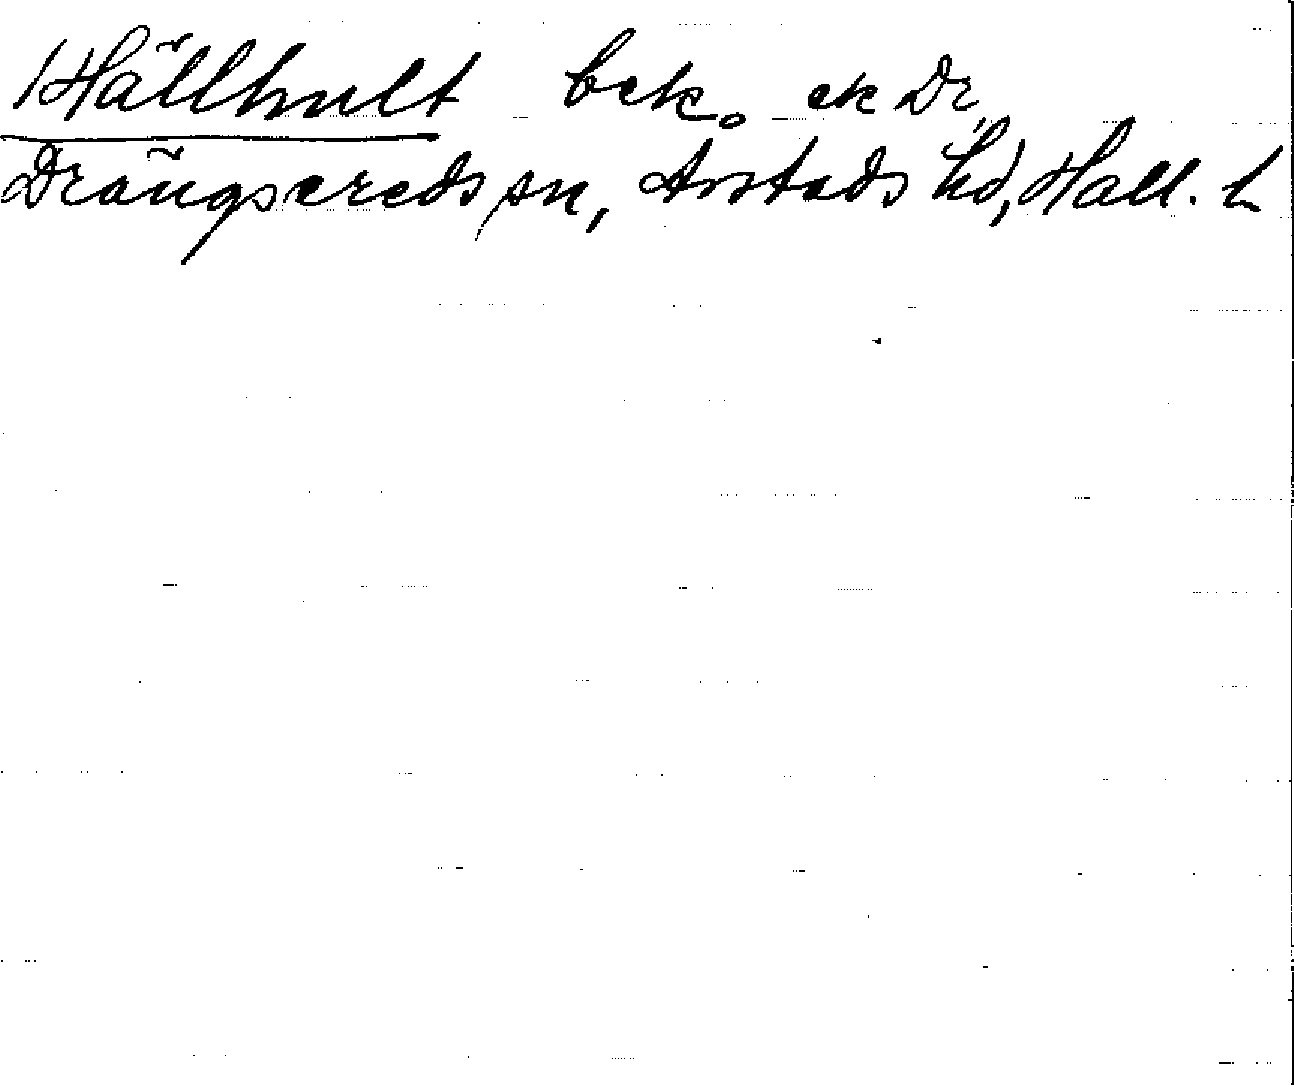 Hällhult bek. ek Dr,
Drängsereds sn, Årstads hd, Hall. L